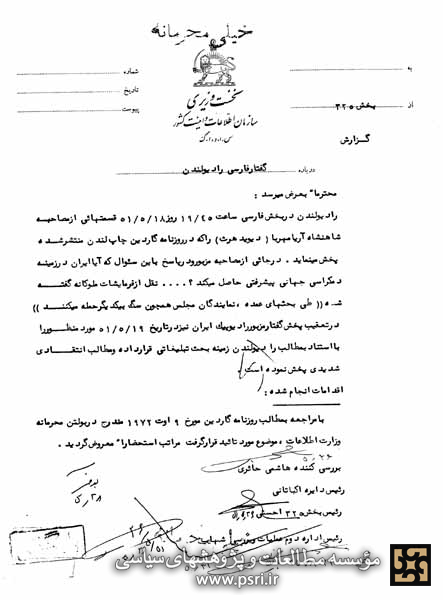 خیلی محرمانه
نخست وزیری
سازمان اطلاعات و امنیت کشور
س.ا.و.ا.ک
به
شماره
از بخش ۳۲۵
تاریخ
پیوست
گزارش
درباره گفتار فارسی رادیو لندن
محترماً بعرض میرسد :
رادیو لندن در بخش فارسی ساعت ۱۹/۴۵ روز ۵۱/۵/۱۸ قسمتهائی از مصاحبه
شاهنشاه آریامهر با ( دیوید هرث) را که در روزنامه گاردین چاپ لندن منتشر شده
پخش مینماید . در جائی از مصاحبه مزبور در پاسخ باین سئوال که آیا ایران در زمینه
دمکراسی جهانی پیشرفتی حاصل میکند ؟ ۰۰۰۰ نقل از فرمایشات ملوکانه گفته
شده (( طی بحثهای عمده ، نمایندگان مجلس همچون سگ بیکدیگر حمله میکنند ))
در تعقیب پخش گفتار مزبور رادیو پیک ایران نیز در تاریخ ۵۱/۵/۱۹ مورد منظور را
با استناد بمطالب رادیو لندن زمینه بحث تبلیغاتی قرار داده و مطالب انتقادی
شدیدی پخش نموده است .
اقدامات انجام شده :
با مراجعه بمطالب روزنامه گاردین مورخ ۹ اوت ۱۹۷۲ مندرج در بولتن محرمانه
وزارت اطلاعات ، موضوع مورد تائید قرار گرفت مراتب استحضاراً معروض گردید .
بررسی کننده هاشمی حائری
رئیس دایره اکباتانی
رئیس بخش ۳۲۵ احسنی
رئیس اداره دوم عملیات و بررسی
مؤسسه مطالعات و پژوهشهای سیاسی
www.psri.ir